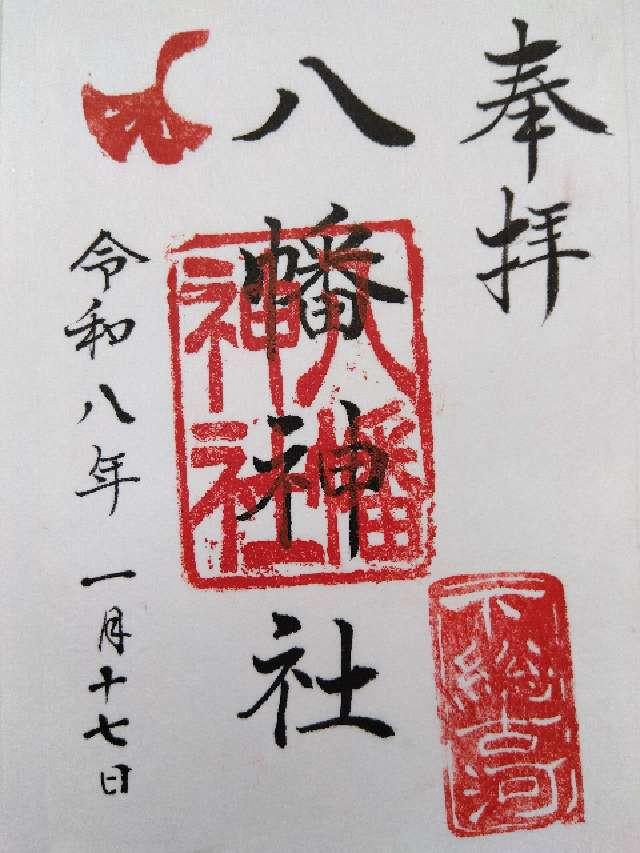 奉拝
八幡神社
八幡
神社
下総古河
令和八年 一月十七日